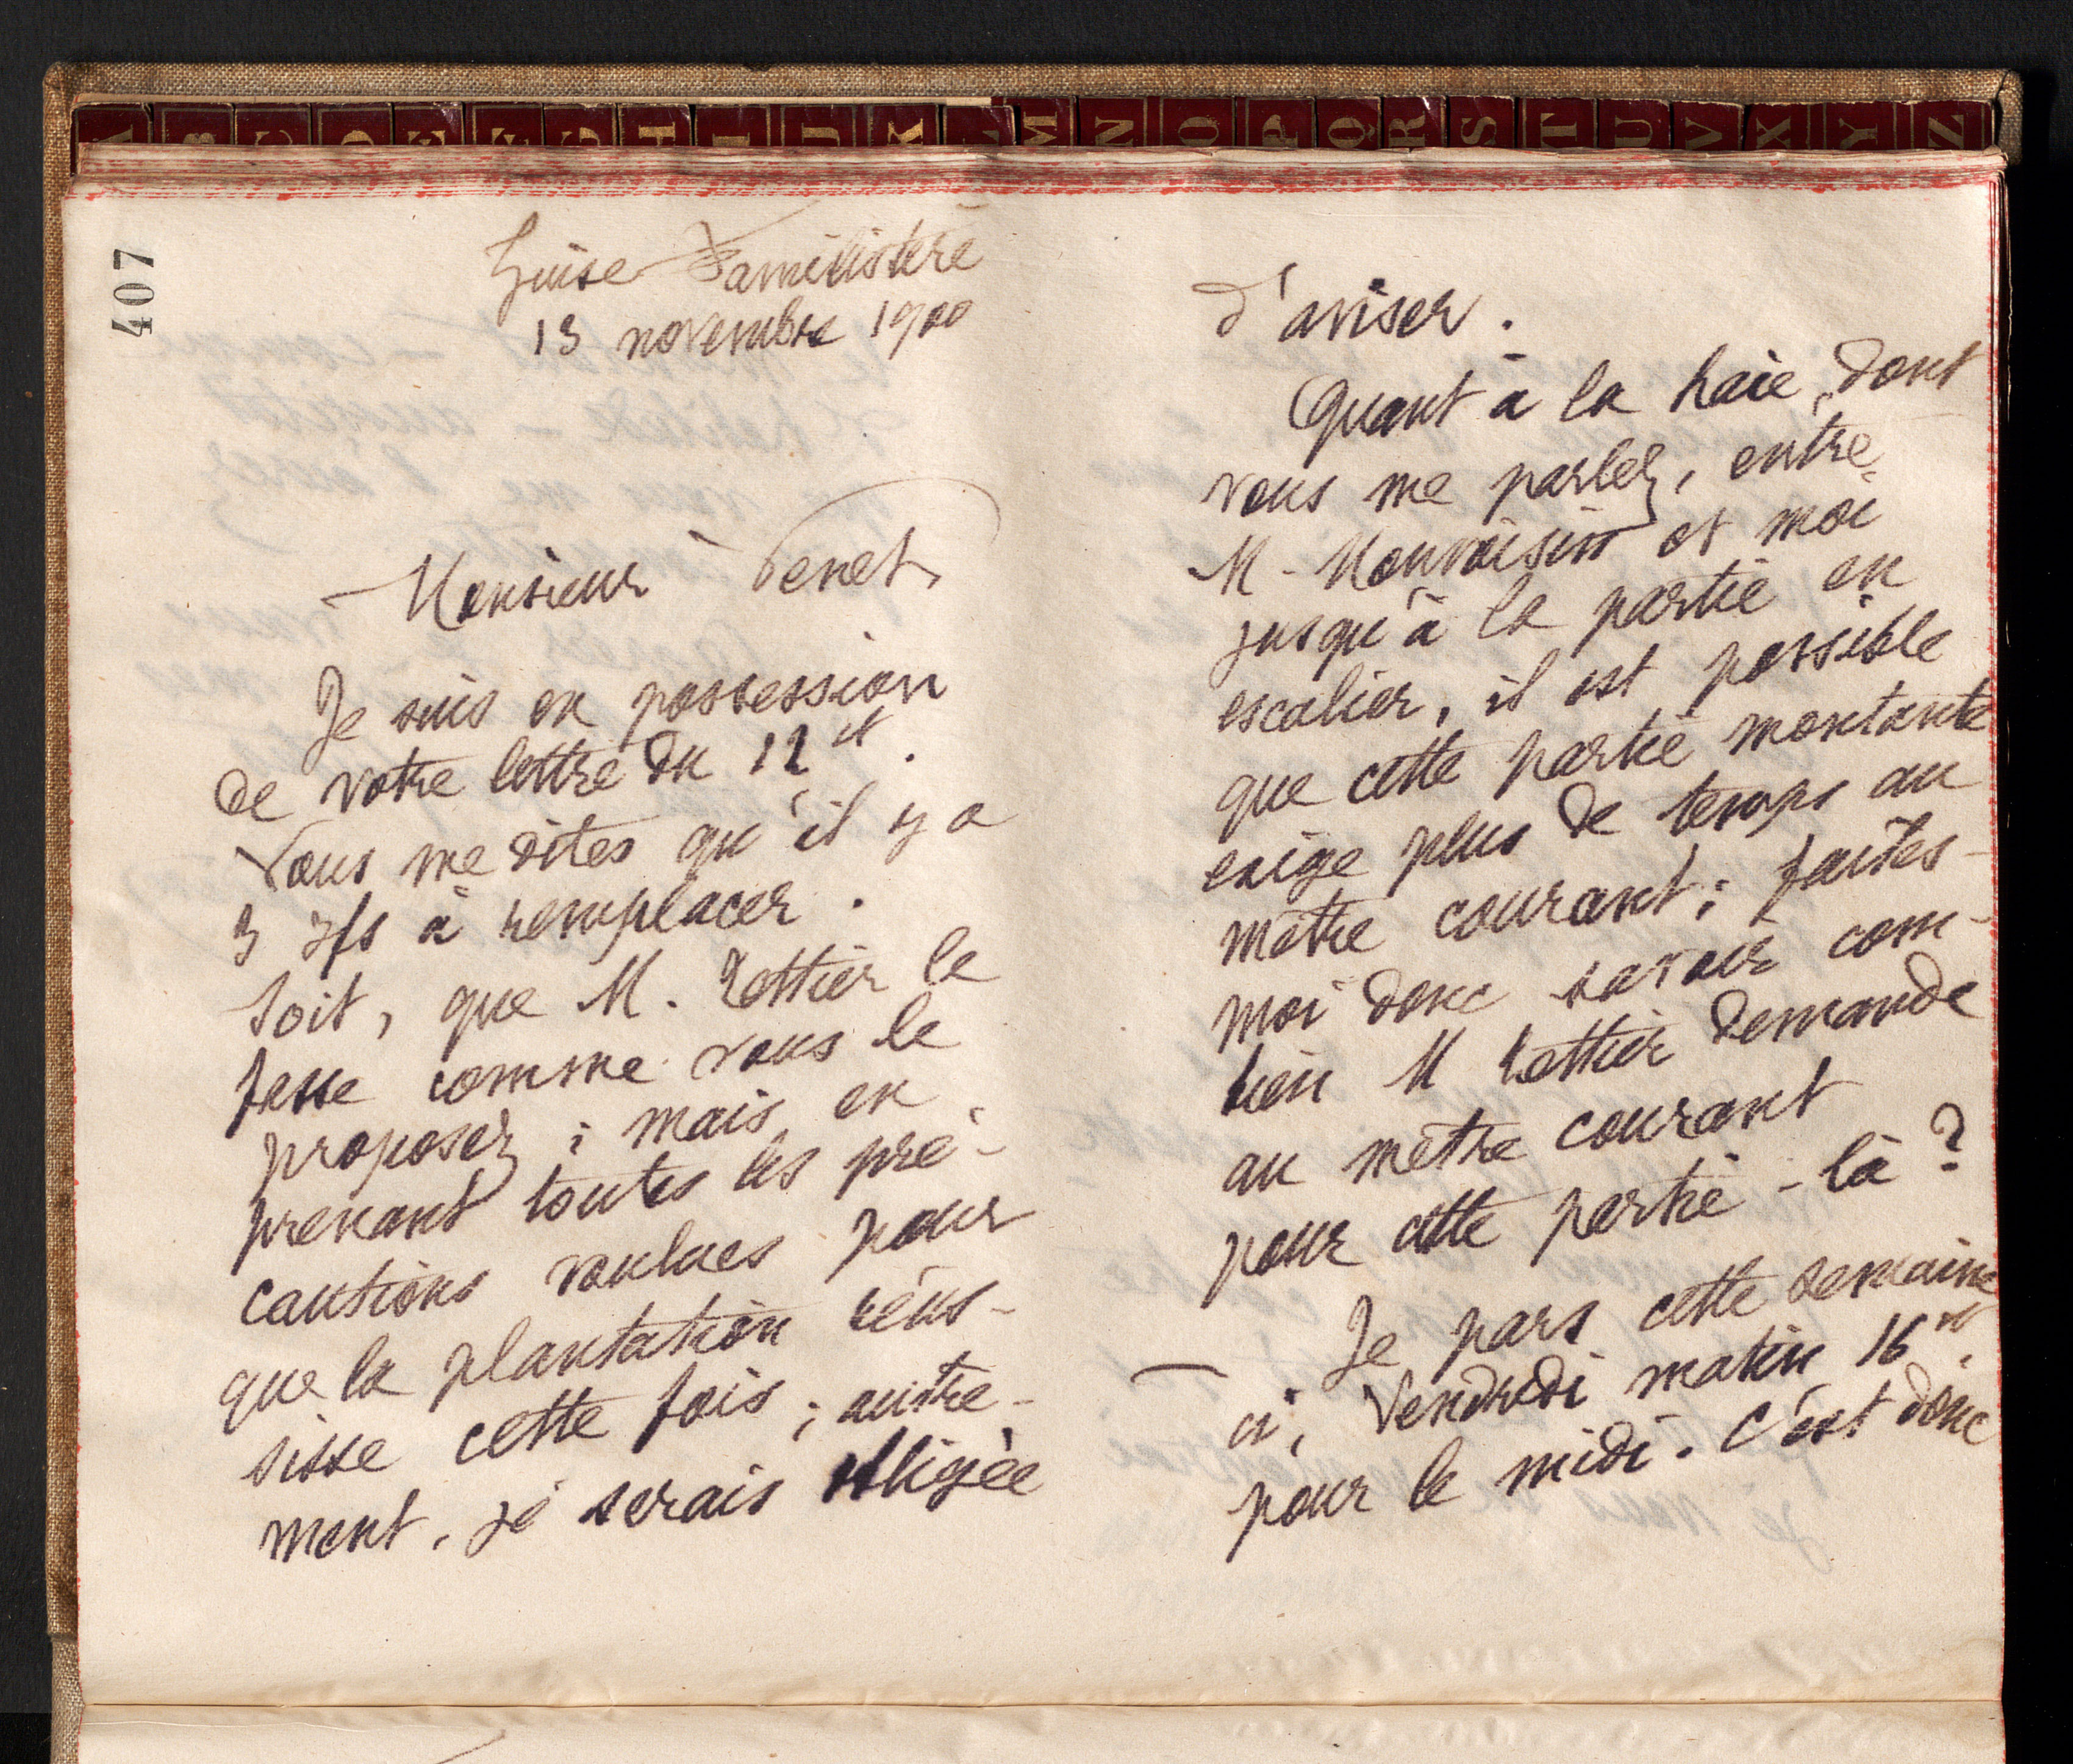 A B C D E F G H I J K L M N O P Q R S T U V X Y Z
407
Guise Familistère
13 novembre 1900
Monsieur Penet,
Je suis en possession
de votre lettre du 12 ct.
Vous me dites qu'il y a
3 ifs à remplacer.
Soit, que M. Lettier le
fasse comme vous le
proposez ; mais en
prenant toutes les pré-
cautions voulues pour
que la plantation réus-
sisse cette fois ; autre-
ment, je serais obligée
d'aviser.
Quant à la haie, dont
vous me parlez, entre
M. Mauvoisin et moi
jusqu'à la partie en
escalier, il est possible
que cette partie montante
exige plus de temps au
mètre courant ; faites-
moi donc savoir com-
bien M Lettier demande
au mètre courant
pour cette partie-là ?
Je pars cette semaine
ci, Vendredi matin 16 ct,
pour le midi. C'est donc